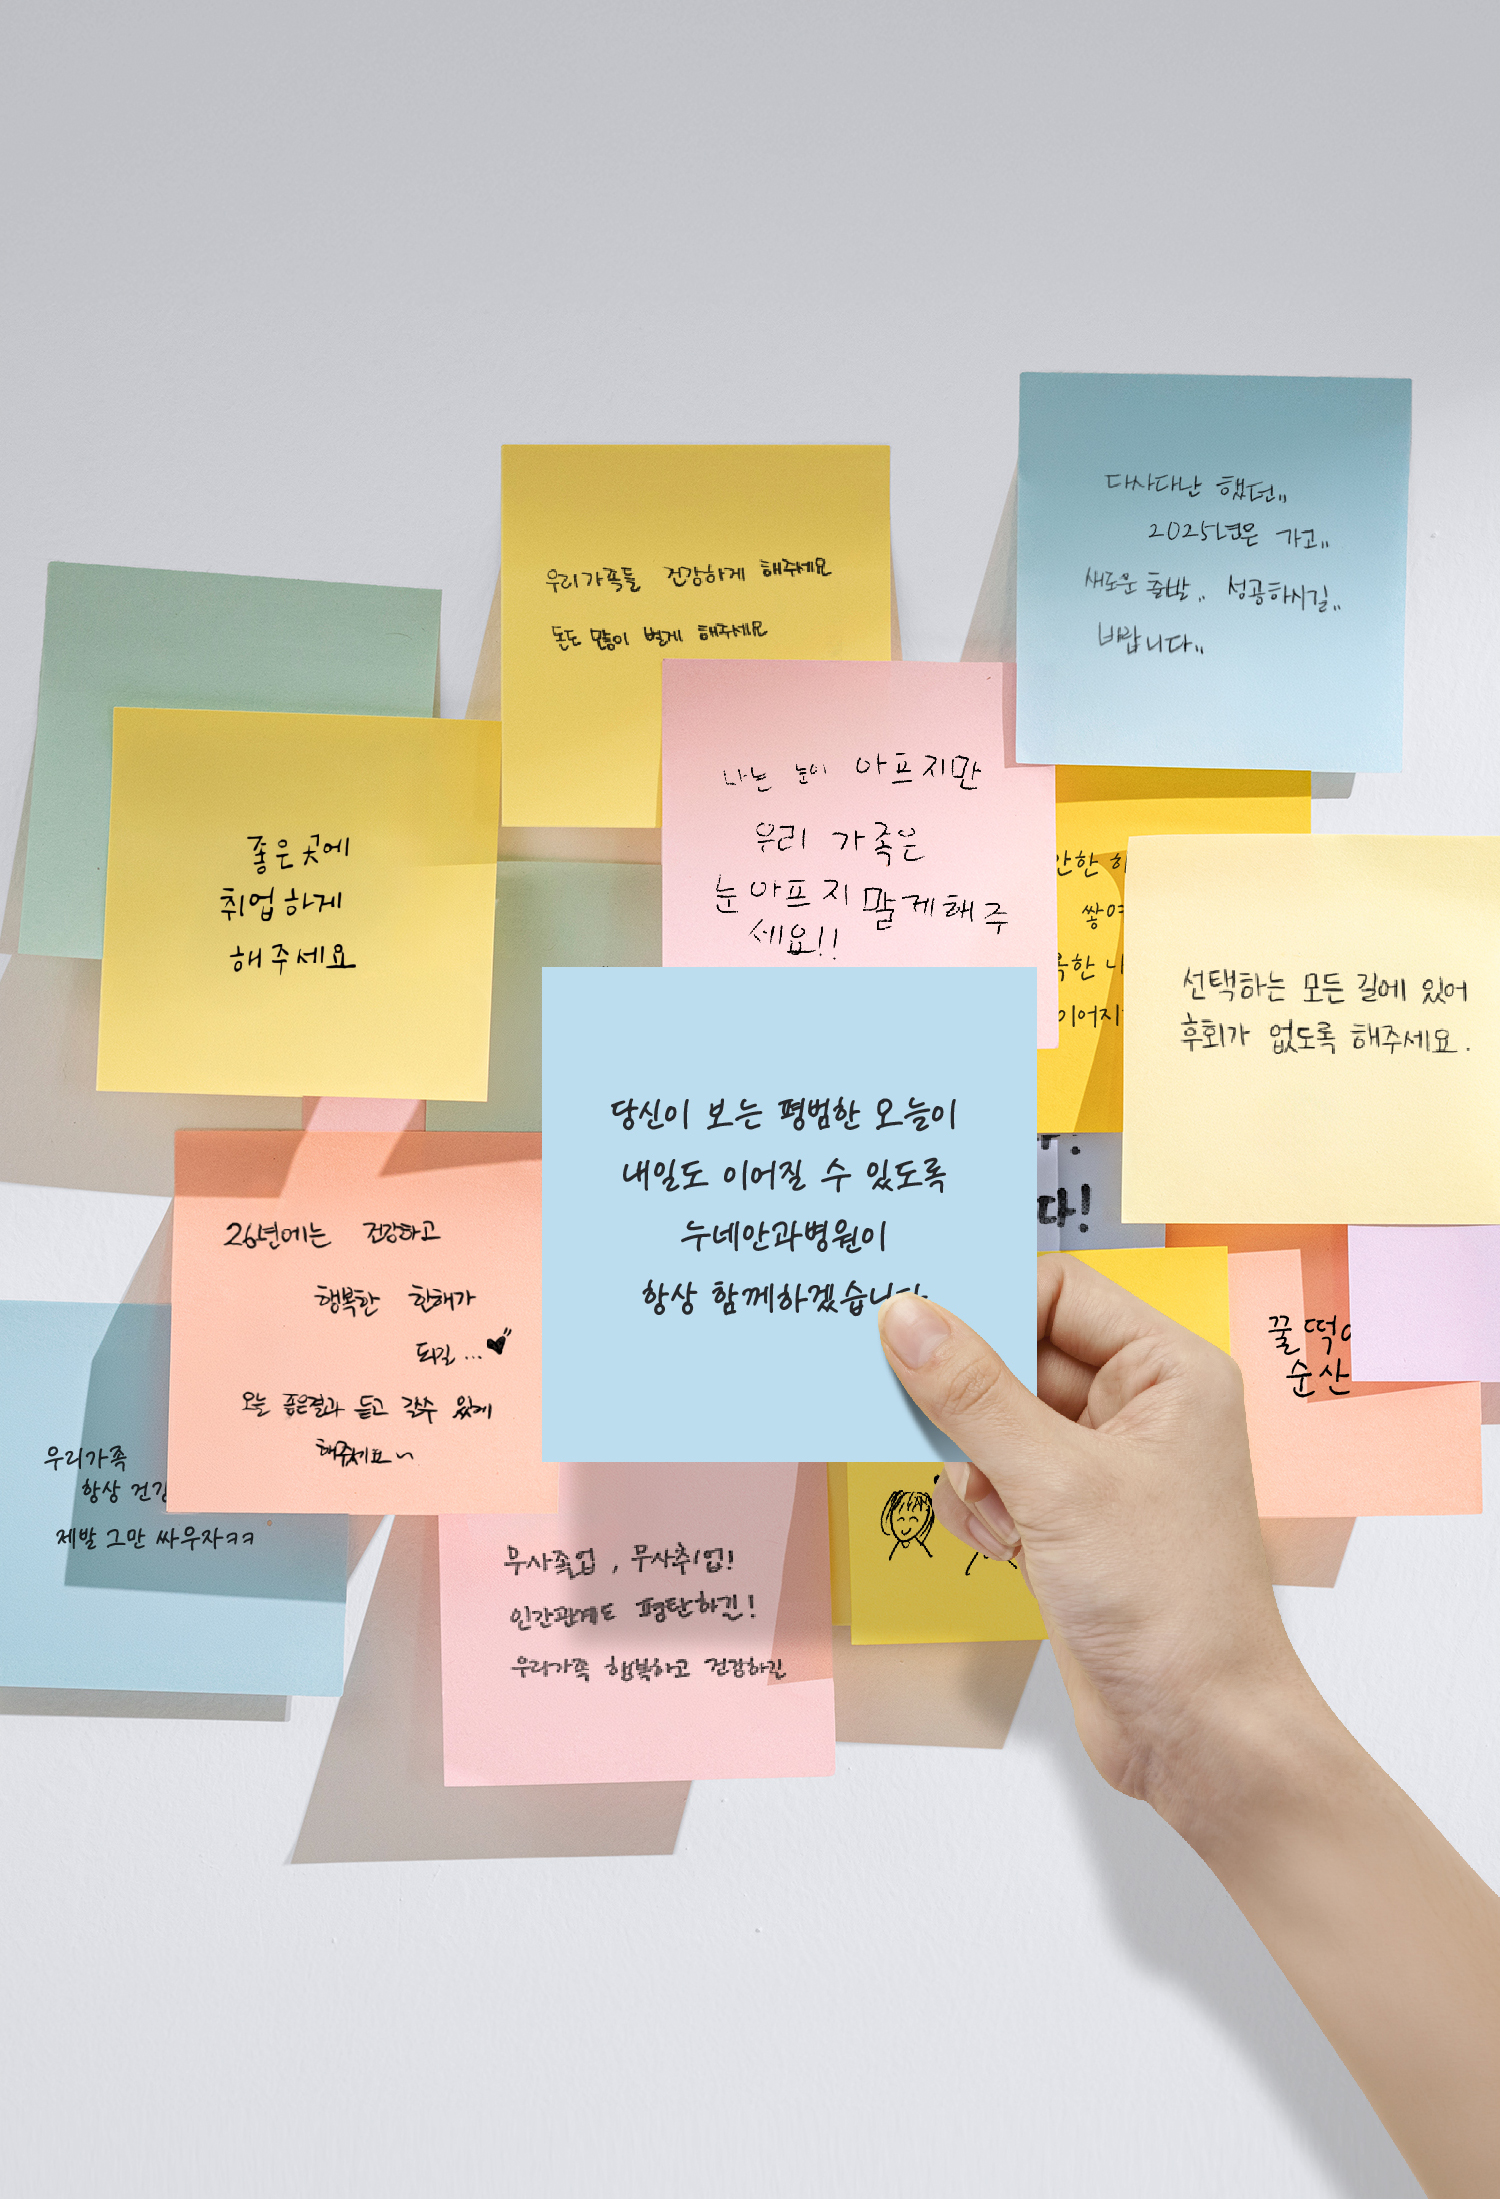 다사다난 했던,,
2025년은 가고,,
새로운 출발,, 성공하시길,,
바랍니다,,
우리가족들 건강하게 해주세요
돈도 많이 벌게 해주세요
나는 눈이 아프지만
우리 가족은
눈아프지 말게해주
세요!!
좋은곳에
취업하게
해주세요
안한 하
쌓여
이어지
선택하는 모든 길에 있어
후회가 없도록 해주세요.
당신이 보는 평범한 오늘이
내일도 이어질 수 있도록
누네안과병원이
항상 함께하겠습니다
다!
26년에는 건강하고
행복한 한해가
되길...
오늘 좋은결과 듣고 갈수 있게
해주세요~
꿀떡이
순산
우리가족
항상 건강
제발 그만 싸우자ㅋㅋ
무사졸업, 무사취업!
인간관계도 평탄하긴!
우리가족 행복하고 건강하긴